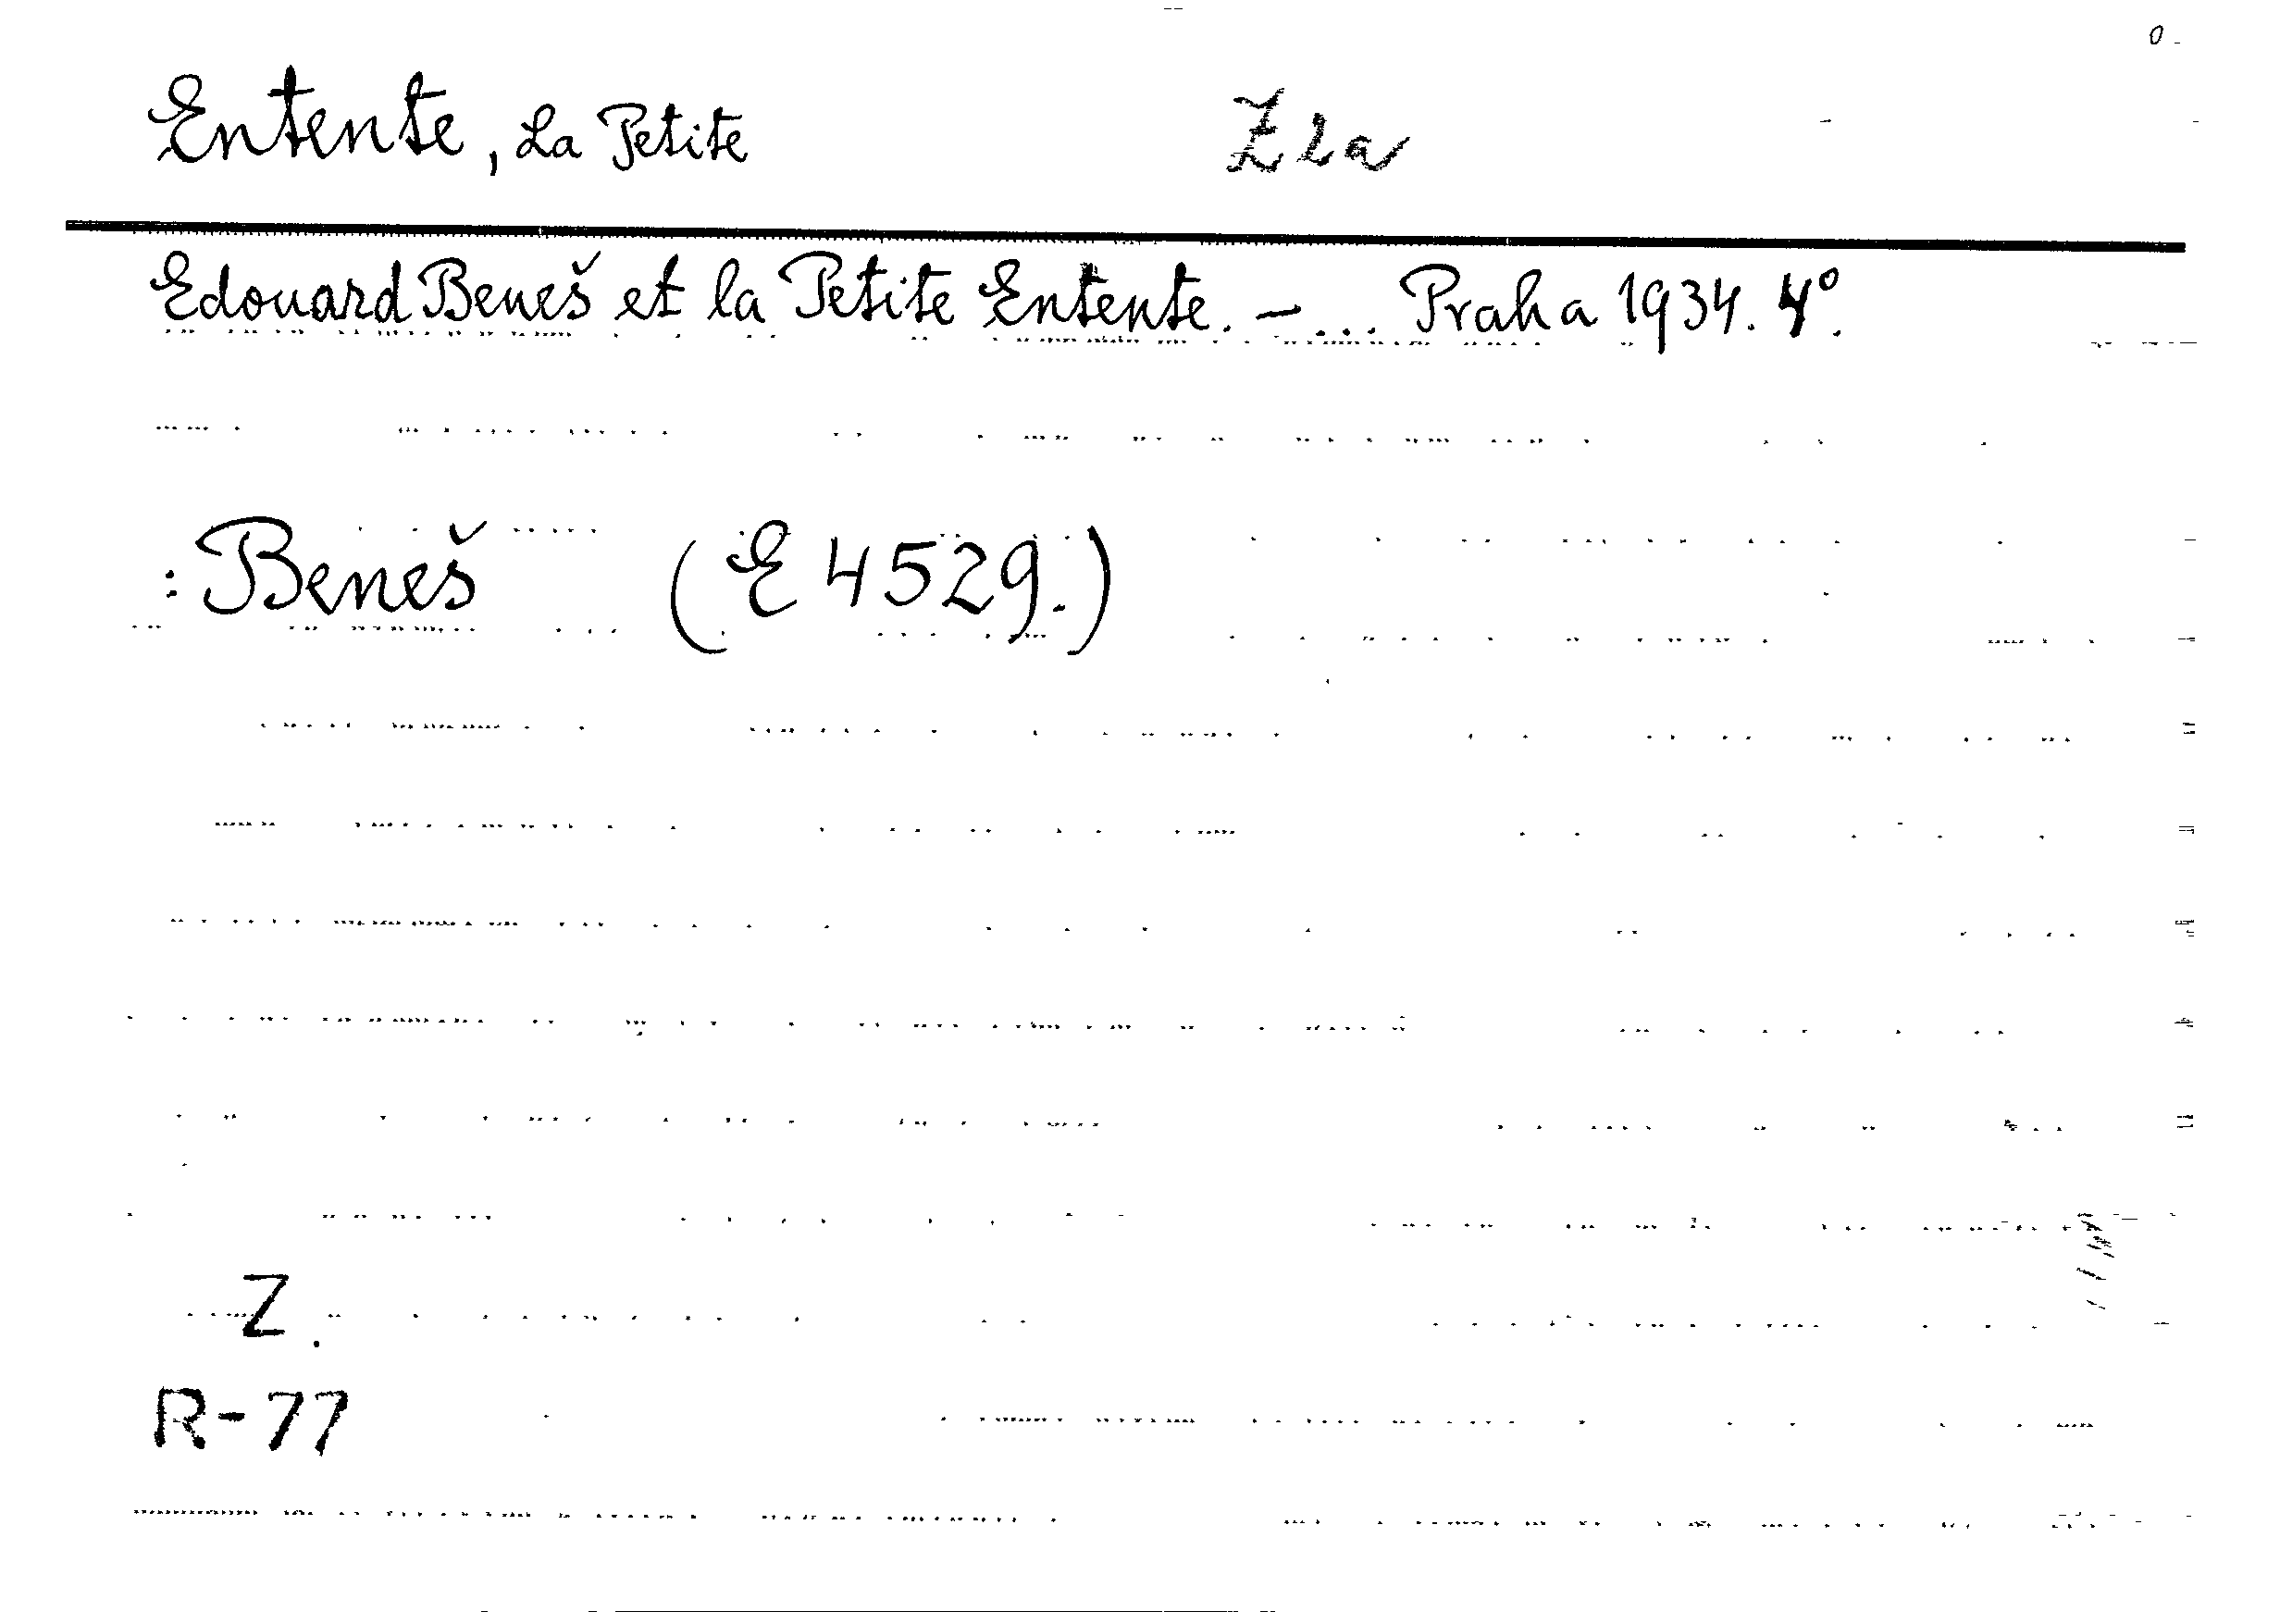 Entente, La Petite Z2a
Edouard Beneš et la Petite Entente. - ... Praha 1934. 4°.
: Beneš (E 4529.)
Z.
R-77